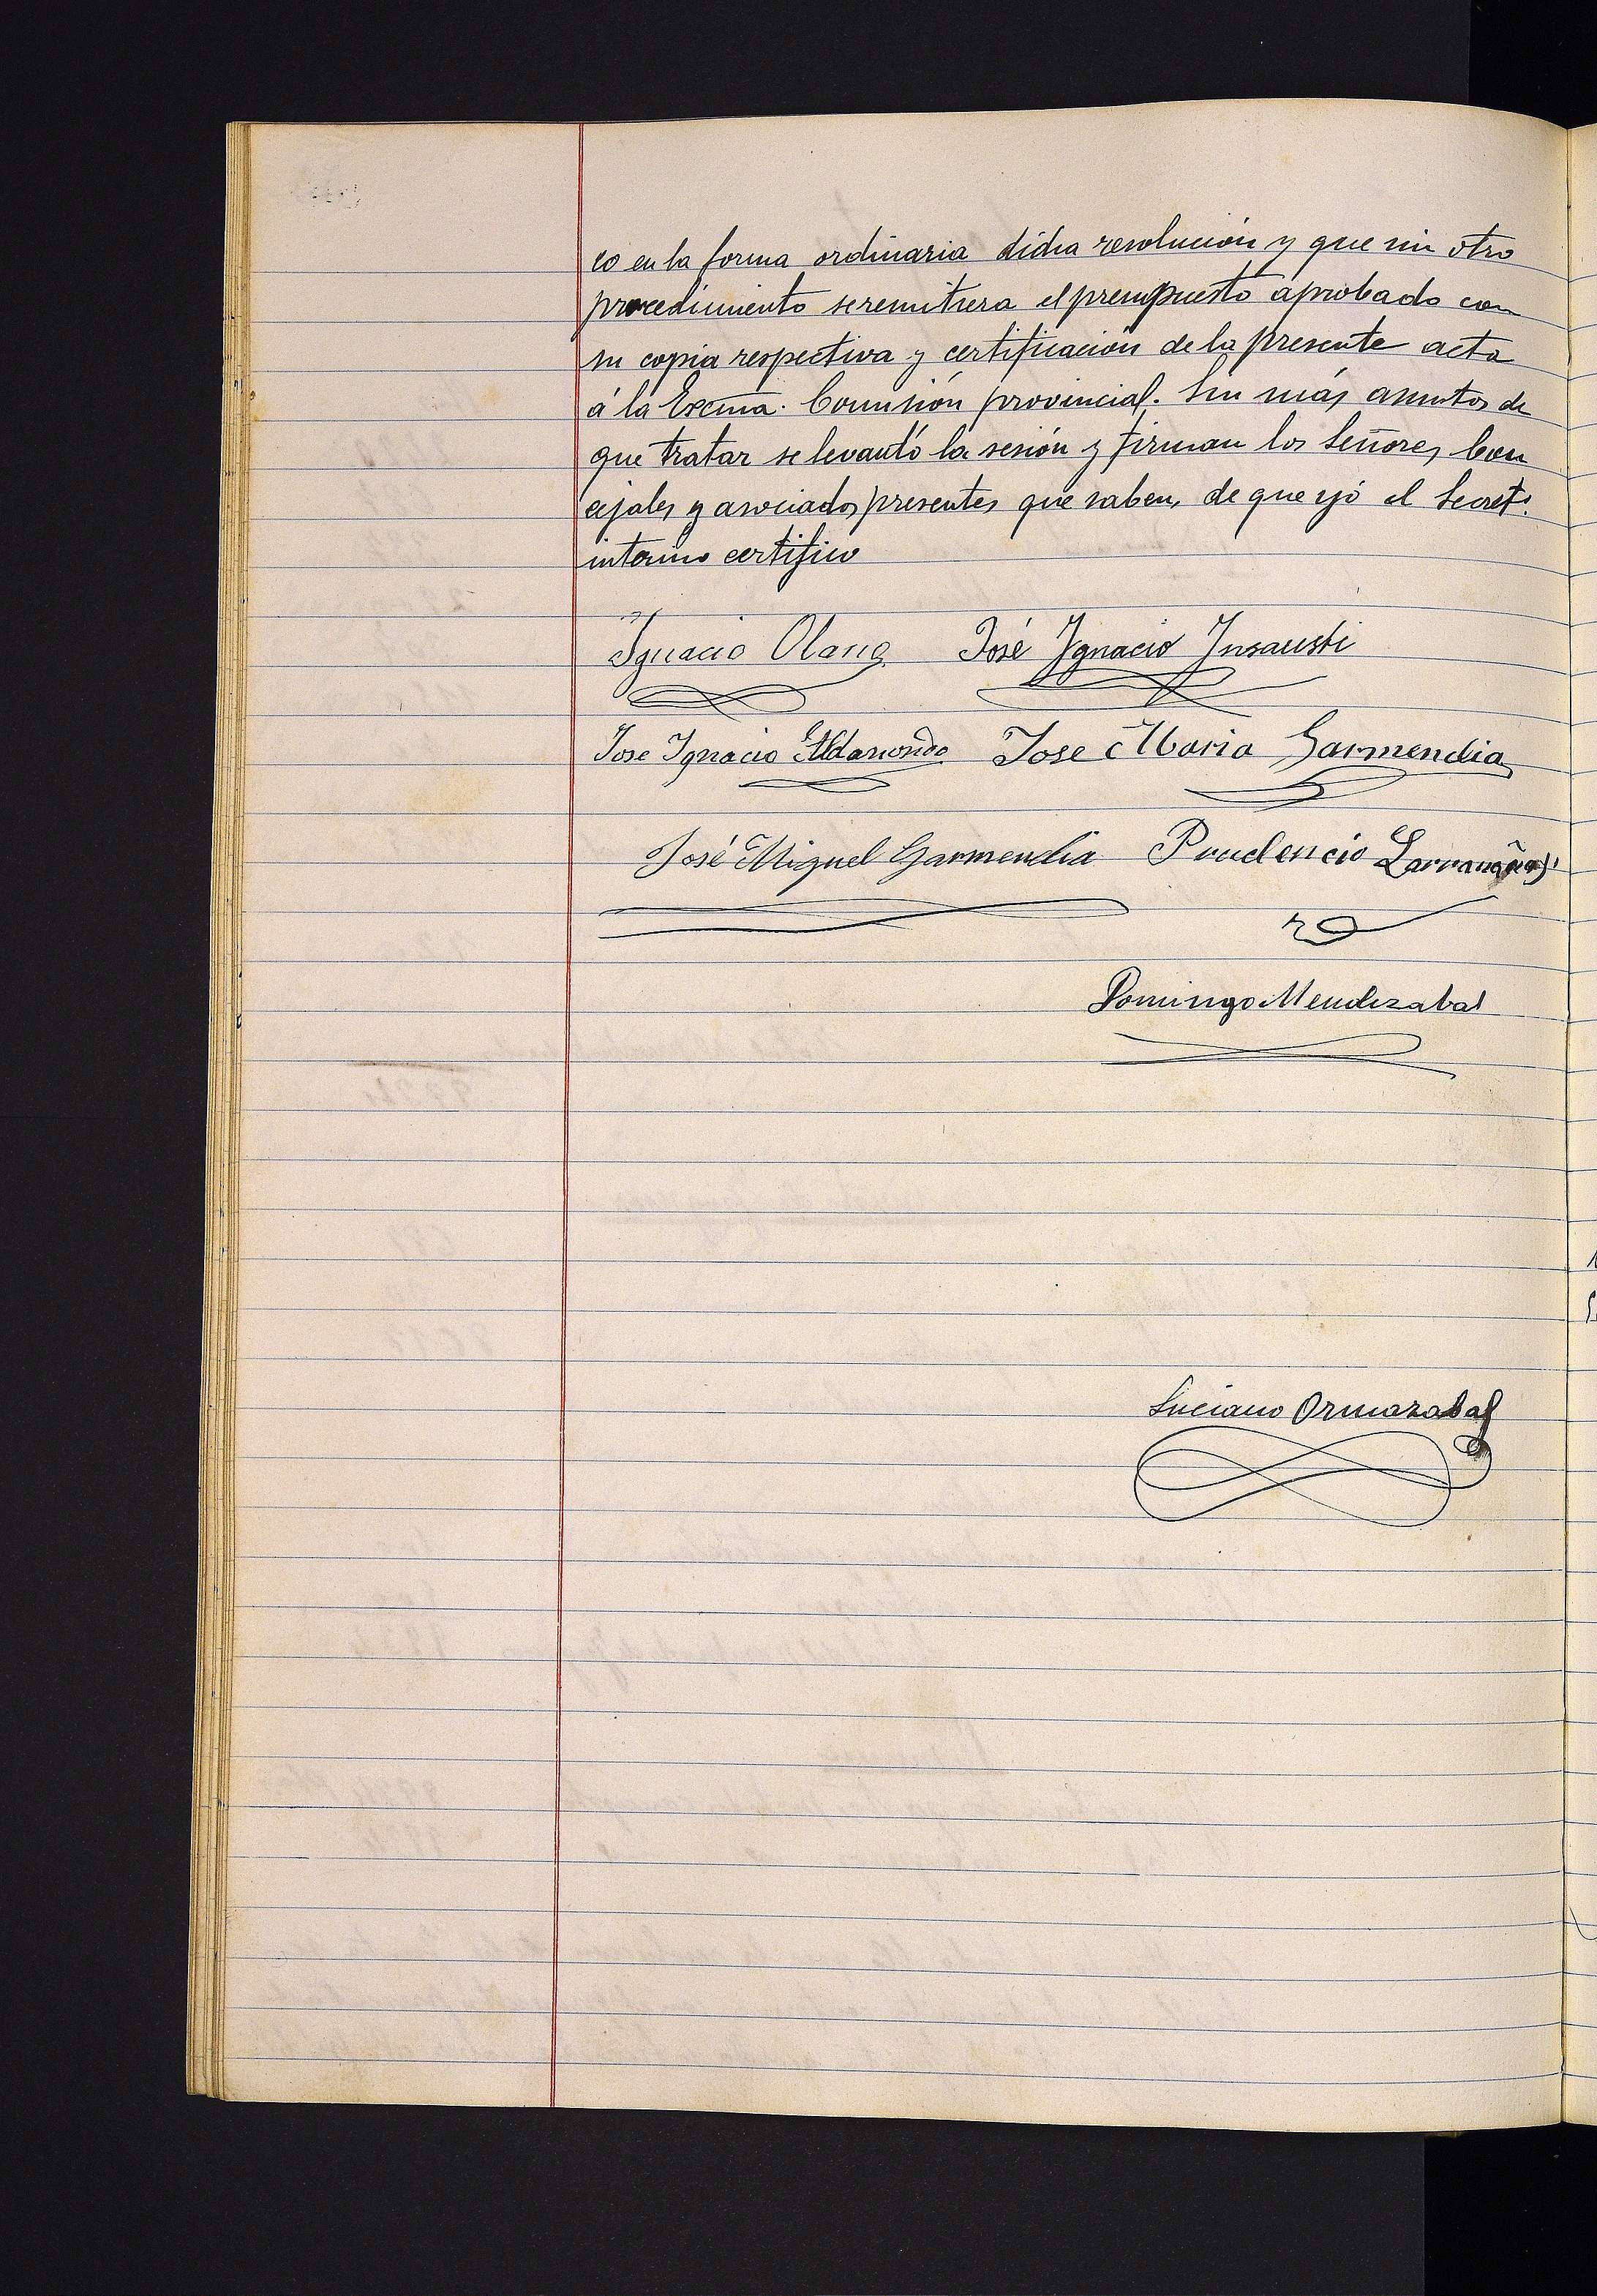 co en la forma ordinaria dicha resolución y que sin otro
procedimiento se remitiera el presupuesto aprobado con
su copia respectiva y certificación de la presente acta
á la Excma. Comisión provincial. Sin más asuntos de
que tratar se levantó la sesión y firman los Señores Con
cejales y asociados presentes que saben, de que yó el Secret.º
interino certifico
Ignacio Olano José Ignacio Insausti
Jose Ignacio Aldanondo Jose Maria Garmendia
José Miguel Garmendia Prudencio Larrañaga
Domingo Mendizabal
Luciano Ormazabal